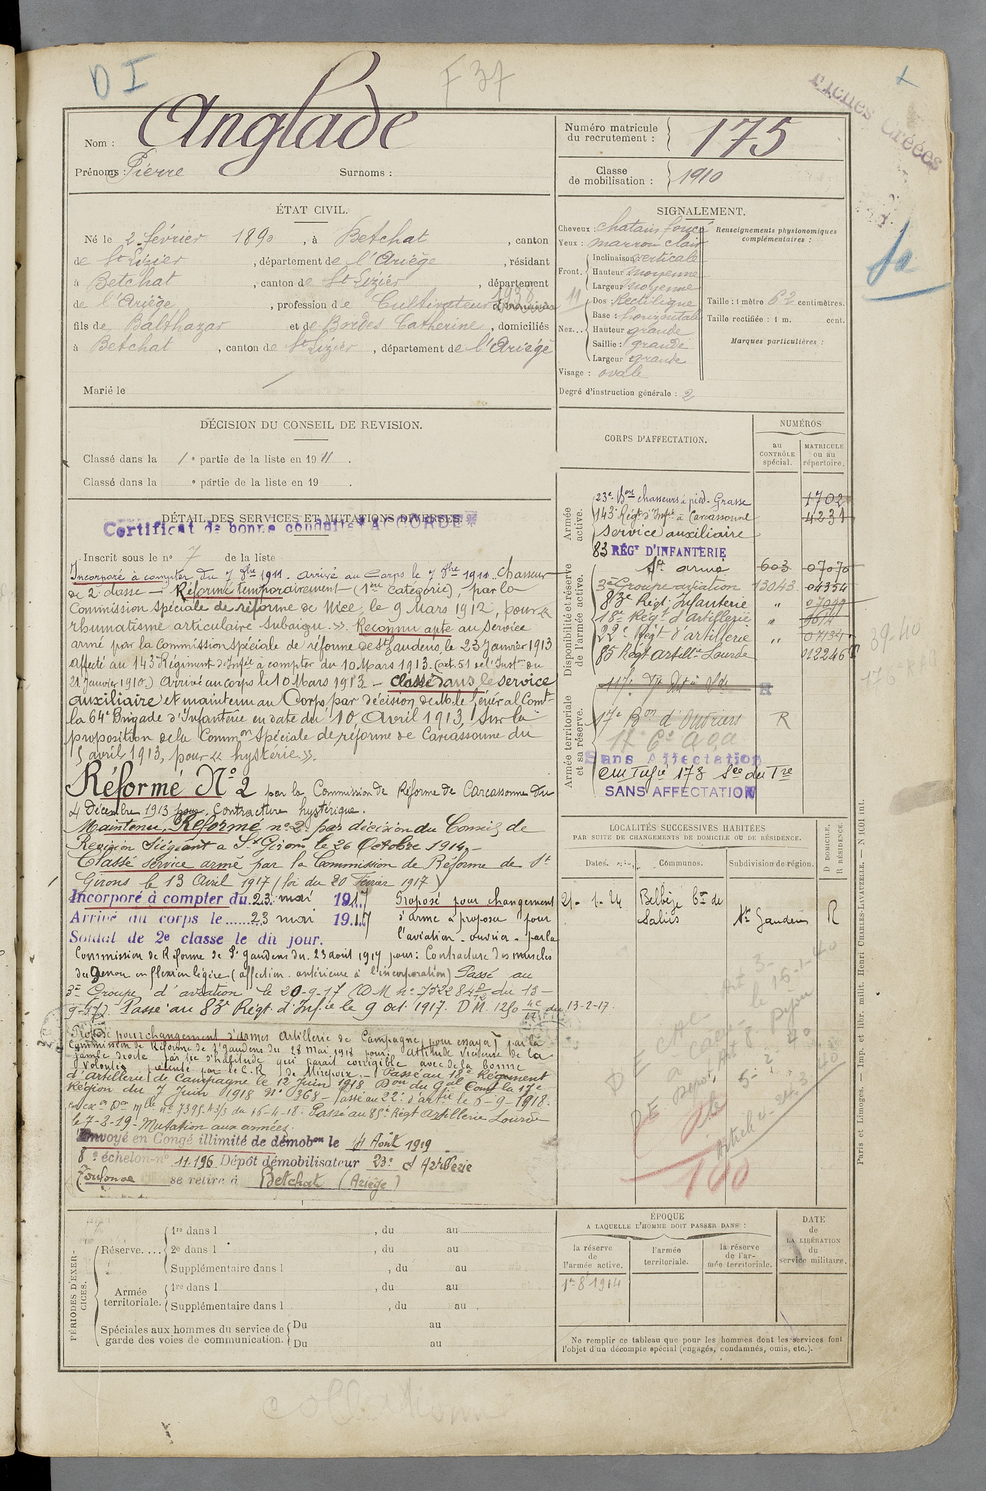 D I
F 37
Fiches Créées
Nom : Anglade
Prénoms : Pierre Surnoms :
Numéro matricule du recrutement : 175
Classe de mobilisation : 1910
ÉTAT CIVIL.
Né le 2 février 1890, à Betchat, canton
de St Lizier, département de l'Ariège, résidant
à Betchat, canton de St Lizier, département
de l'Ariège, profession de Cultivateur
fils de Balthazar et de Bordes Catherine, domiciliés
à Betchat, canton de St Lizier, département de l'Ariège
Marié le
SIGNALEMENT.
Cheveux châtain foncé
Yeux : marron clair
Front. Inclinaison verticale
Hauteur moyenne
Largeur moyenne
Nez. Dos Rectiligne
Base : horizontale
Hauteur grande
Saillie : grande
Largeur grande
Visage : ovale
Degré d'instruction générale : 2
Renseignements physionomiques complémentaires :
Taille : 1 mètre 62 centimètres.
Taille rectifiée : 1 m. cent.
Marques particulières :
DÉCISION DU CONSEIL DE REVISION.
Classé dans la 1e partie de la liste en 1911.
Classé dans la e partie de la liste en 19 .
DÉTAIL DES SERVICES ET MUTATIONS DIVERSES
Certificat de bonne conduite "ACCORDÉ"
Inscrit sous le no 7 de la liste
Incorporé à compter du 7 8bre 1911. Arrivé au Corps le 7 8bre 1911. Chasseur
de 2e classe — Réformé temporairement (1ère catégorie), par la
Commission spéciale de réforme de Nice, le 9 Mars 1912, pour «
rhumatisme articulaire subaigu. » Reconnu apte au Service
armé par la Commission spéciale de réforme de St Gaudens, le 23 janvier 1913
affecté au 143e Régiment d'Infie à compter du 10 Mars 1913. (art. 51 de l'Inston du
21 janvier 1910.) Arrivé au corps le 10 Mars 1913 — Classé dans le service
auxiliaire et maintenu au Corps par décision de M. le Général Comt
la 64e Brigade d'Infanterie en date du 10 Avril 1913, sur la
proposition de la Common Spéciale de réforme de Carcassonne du
5 avril 1913, pour « hystérie ».
Réformé No 2 par la Commission de Réforme de Carcassonne du
4 Décembre 1913 pour Contracture hystérique.
Maintenu Réformé no 2 par décision du Conseil de
Revision Siégeant à St Girons le 26 Octobre 1914.
Classé service armé par la Commission de Réforme de St
Girons le 13 Avril 1917 (loi du 20 Février 1917)
Incorporé à compter du 23 mai 1917
Arrivé au corps le 23 mai 1917
Soldat de 2e classe le dit jour.
Proposé pour changement
d'arme à proposer pour
l'aviation - ouvrier - par la
Commission de Réforme de St Gaudens du 23 août 1917 pour : Contracture des muscles
du genou en flexion légère (affection antérieure à l'incorporation) Passé au
3e Groupe d'aviation le 20-9-17
9-17). Passé au 83e Régt d'Infie le 9 oct 1917. du 13-2-17.
Proposé pour changement d'armes Artillerie de Campagne, pour essayer par la
Commission de Réforme de St Gaudens du 28 mai 1918 pour attitude vicieuse de la
jambe droite par tic d'habitude qui paraît corrigible avec de la bonne
volonté Passé au 18e Régiment
d'artillerie de Campagne le 12 Juin 1918 Don du Gal Comt la 17e
Région du 7 Juin 1918 No 368 - Passé au 22e d'artie le 6-9-1918.
Passé au 85e Régt Artillerie Lourde
le 7-2-19. Mutation aux armées.
Envoyé en Congé illimité de démobon le 4 Août 1919
8e échelon no 11.196 Dépôt démobilisateur 23e d'Artillerie
Toulouse se retire à Betchat (Ariège)
CORPS D'AFFECTATION.
NUMÉROS
au CONTRÔLE spécial.
MATRICULE ou au répertoire.
Armée active.
23e Bon chasseurs à pied - Grasse 1702
143e Régt d'Infie à Carcassonne 4231
Service auxiliaire
Disponibilité et réserve de l'armée active.
83 RÉGt D'INFANTERIE
Sce armé 603 07070
3e Groupe aviation 13043 04354
83e Régt Infanterie "
18e Régt d'artillerie "
22e Régt d'artillerie "
85 Régt Artillie Lourde 012246
39-40
Armée territoriale et sa réserve.
17e Bon d'Ouvriers R
Sans Affectation
SANS AFFECTATION
LOCALITÉS SUCCESSIVES HABITÉES
PAR SUITE DE CHANGEMENTS DE DOMICILE OU DE RÉSIDENCE.
Dates. Communes. Subdivision de région. D DOMICILE. R RÉSIDENCE.
21-1-24 Belbèze Con de Salies St Gaudens R
100
PÉRIODES D'EXERCICES.
Réserve.... 1re dans l , du au
2e dans l , du au
Supplémentaire dans l , du au
Armée territoriale. 1re dans l , du au
Supplémentaire dans l , du au
Spéciales aux hommes du service de garde des voies de communication. Du au
Du au
ÉPOQUE
A LAQUELLE L'HOMME DOIT PASSER DANS :
la réserve de l'armée active.
l'armée territoriale.
la réserve de l'armée territoriale.
DATE DE LA LIBÉRATION du service militaire.
1er 8 1914
Ne remplir ce tableau que pour les hommes dont les services font
l'objet d'un décompte spécial (engagés, condamnés, omis, etc.).
Paris et Limoges. — Imp. et libr. milit. Henri CHARLES-LAVAUZELLE. — N 1031 int.